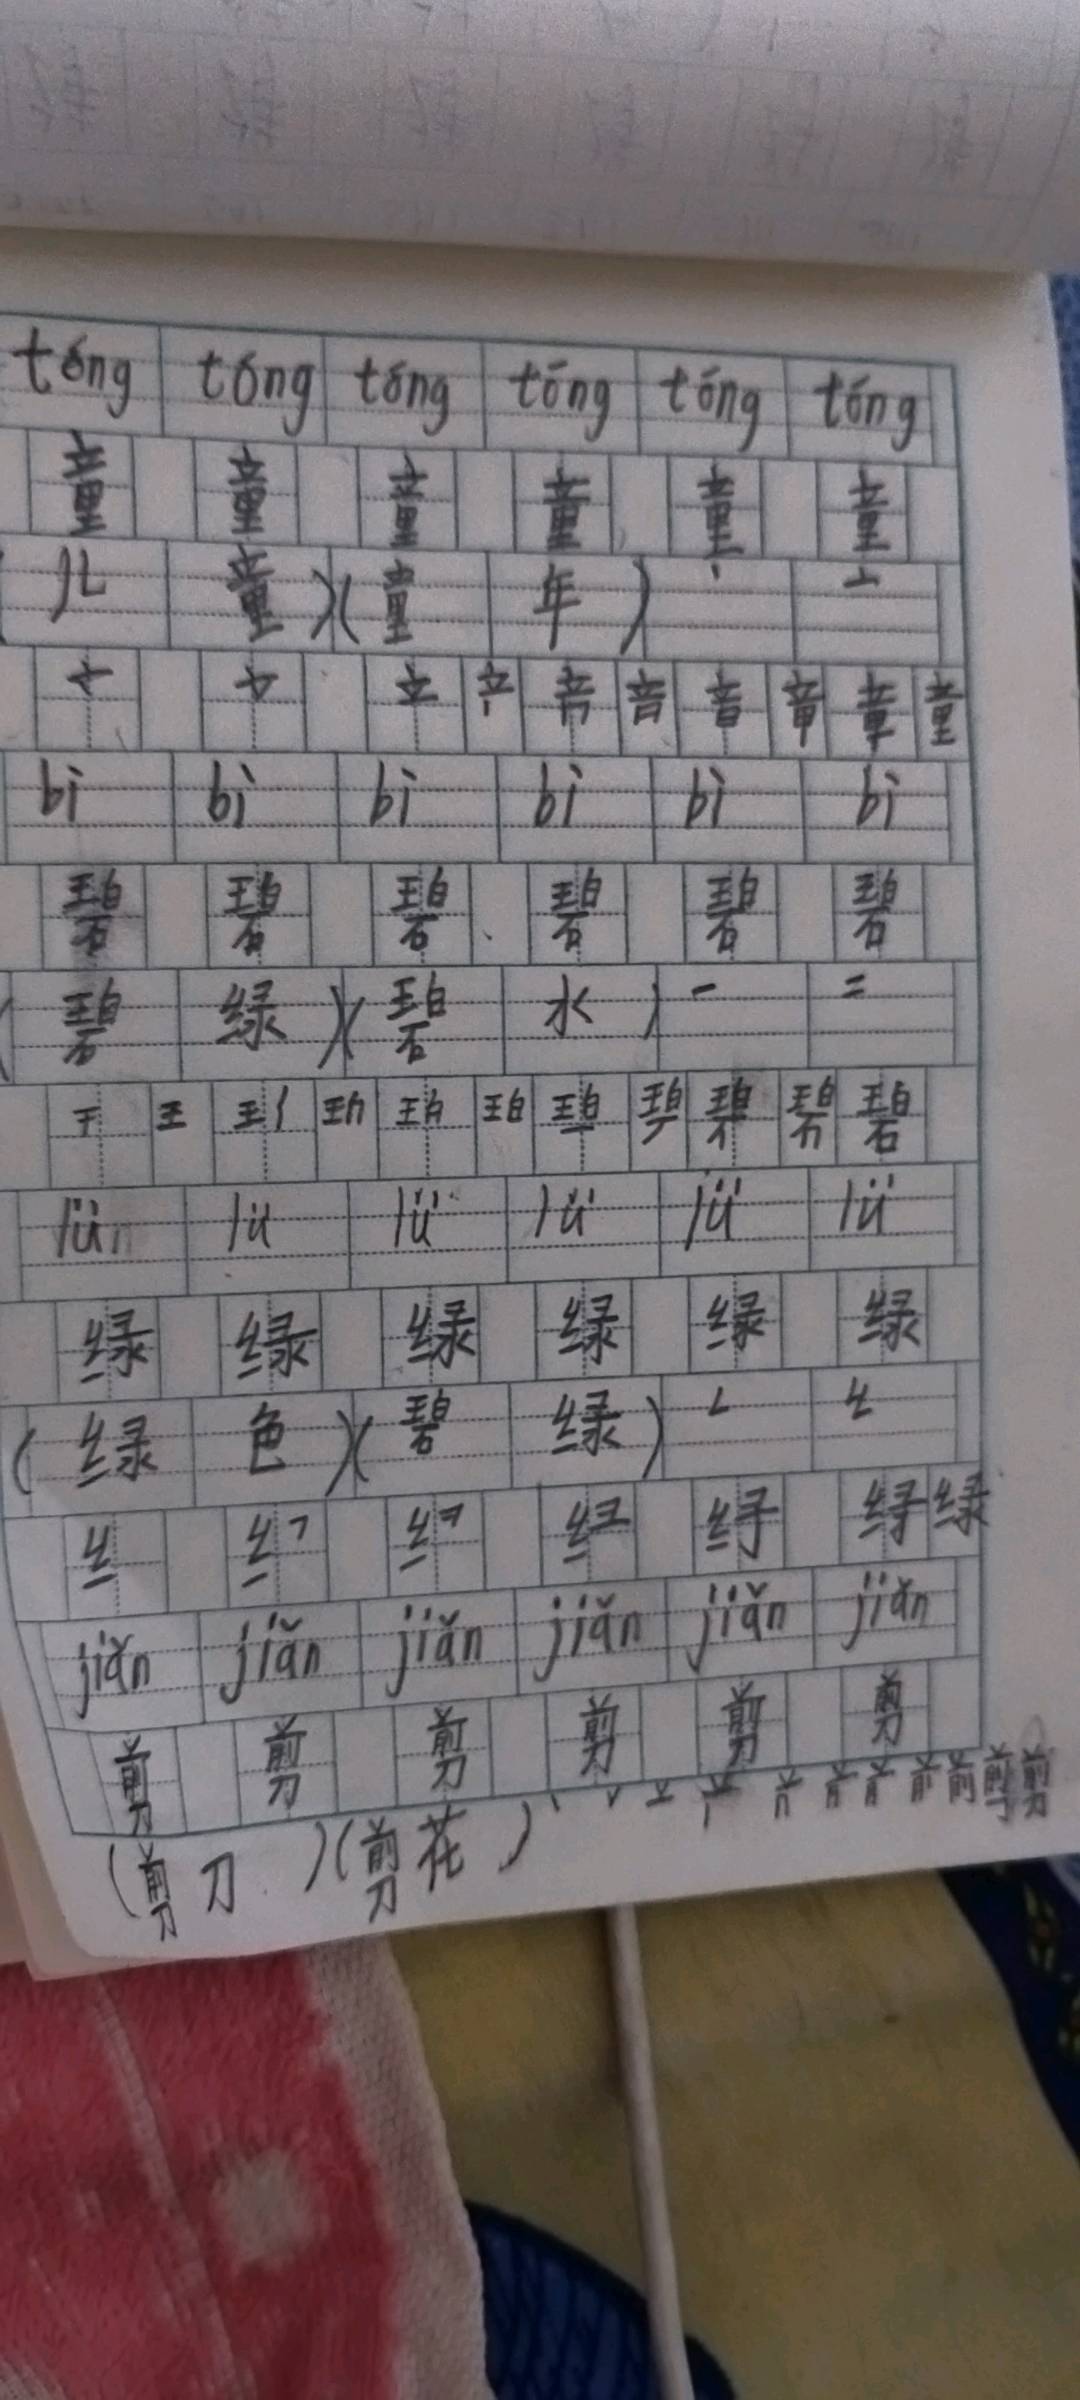 tóng tóng tóng tóng tóng tóng
童 童 童 童 童 童
(儿 童)(童 年) 丶 亠
立 产 音 音 章 童
bì bì bì bì bì bì
碧 碧 碧 碧 碧 碧
(碧 绿)(碧 水) 一 二
王 珀 碧
lǜ lü lü lü lü lü
绿 绿 绿 绿 绿 绿
(绿 色)(碧 绿)
纟 绿
jiǎn jiǎn jiǎn jiǎn jiǎn jiǎn
剪 剪 剪 剪 剪 剪
(剪 刀)(剪 花) 丶 前 剪